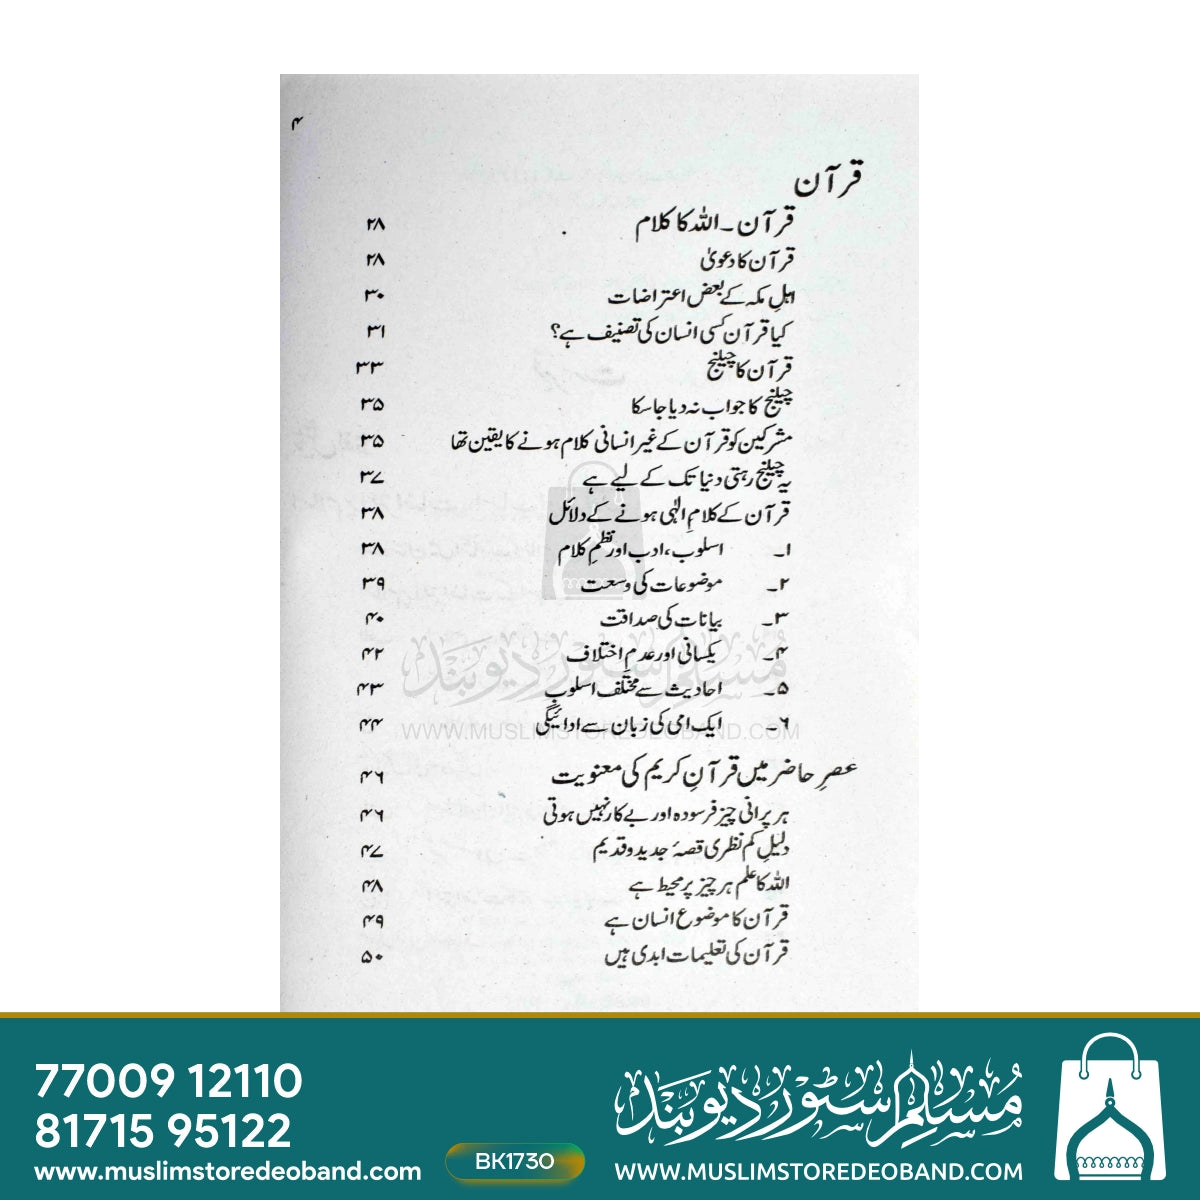 ۴
قرآن
قرآن۔اللہ کا کلام ۲۸
قرآن کا دعویٰ ۲۸
اہلِ مکہ کے بعض اعتراضات ۳۰
کیا قرآن کسی انسان کی تصنیف ہے؟ ۳۱
قرآن کا چیلنج ۳۳
چیلنج کا جواب نہ دیا جاسکا ۳۵
مشرکین کو قرآن کے غیر انسانی کلام ہونے کا یقین تھا ۳۵
یہ چیلنج رہتی دنیا تک کے لیے ہے ۳۷
قرآن کے کلامِ الٰہی ہونے کے دلائل ۳۸
۱۔ اسلوب، ادب اور نظمِ کلام ۳۸
۲۔ موضوعات کی وسعت ۳۹
۳۔ بیانات کی صداقت ۴۰
۴۔ یکسانی اور عدمِ اختلاف ۴۲
۵۔ احادیث سے مختلف اسلوب ۴۳
۶۔ ایک امی کی زبان سے ادائیگی ۴۴
عصرِ حاضر میں قرآنِ کریم کی معنویت ۴۶
ہر پرانی چیز فرسودہ اور بے کار نہیں ہوتی ۴۶
دلیلِ کم نظری قصۂ جدید و قدیم ۴۷
اللہ کا علم ہر چیز پر محیط ہے ۴۸
قرآن کا موضوع انسان ہے ۴۹
قرآن کی تعلیمات ابدی ہیں ۵۰
مسلم سٹور دیوبند
WWW.MUSLIMSTOREDEOBAND.COM
77009 12110
81715 95122
www.muslimstoredeoband.com
BK1730
مُسلم سٹور دیوبند
WWW.MUSLIMSTOREDEOBAND.COM